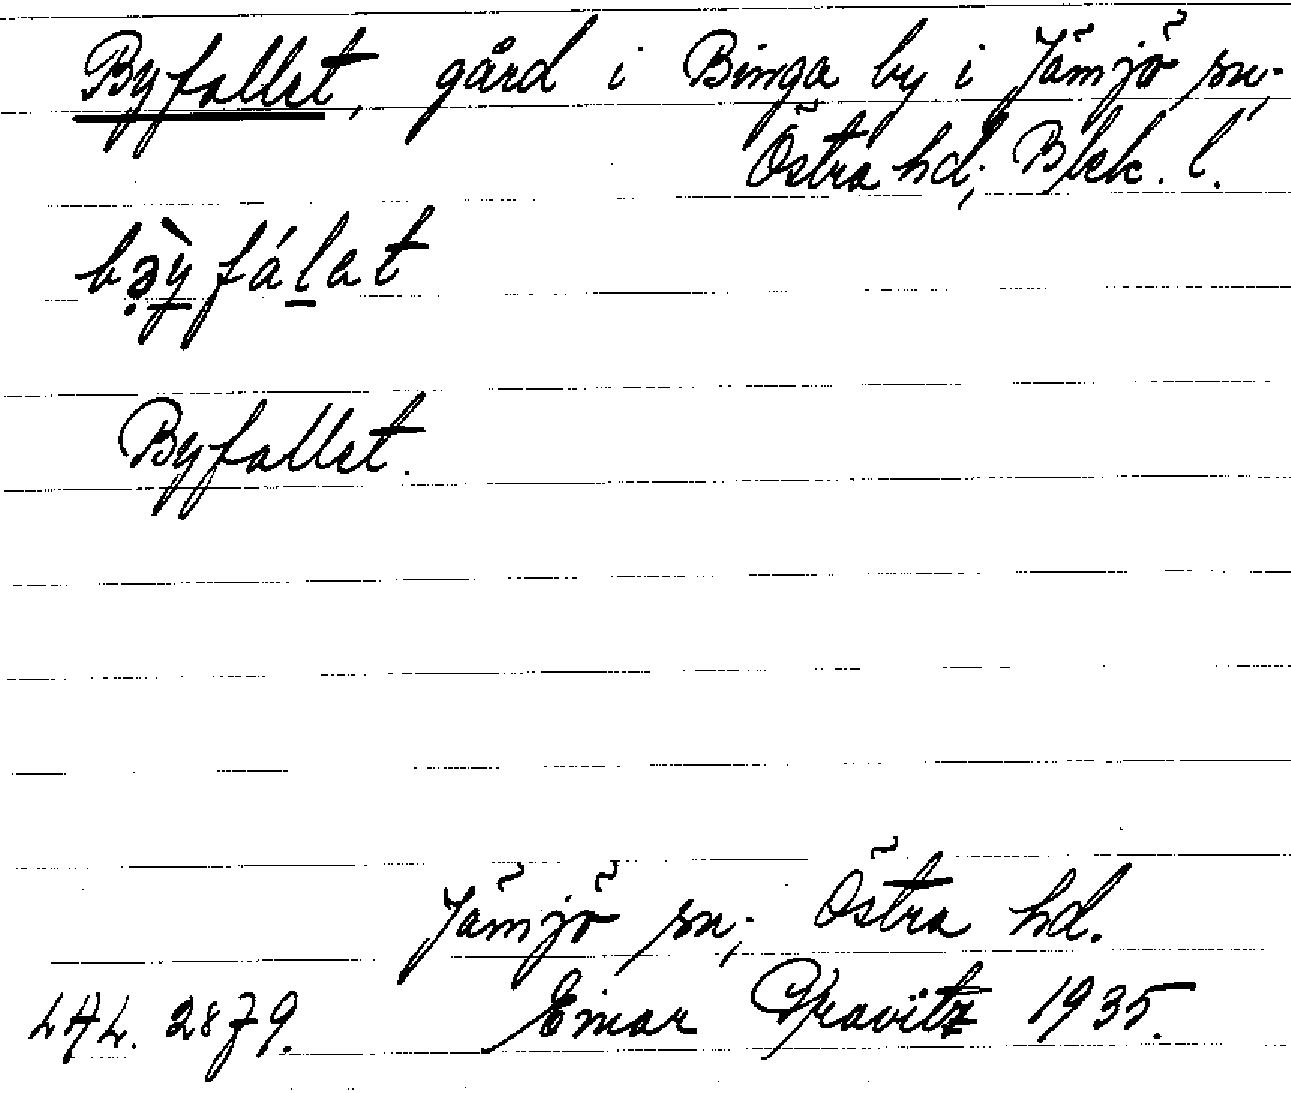 Byfallet, gård i Binga by i Jämjö sn;
Östra hd; Blek. l.
bə̣̀y fálat
Byfallet.
Jämjö sn; Östra hd.
LAL. 2879. Einar Kravitz 1935.